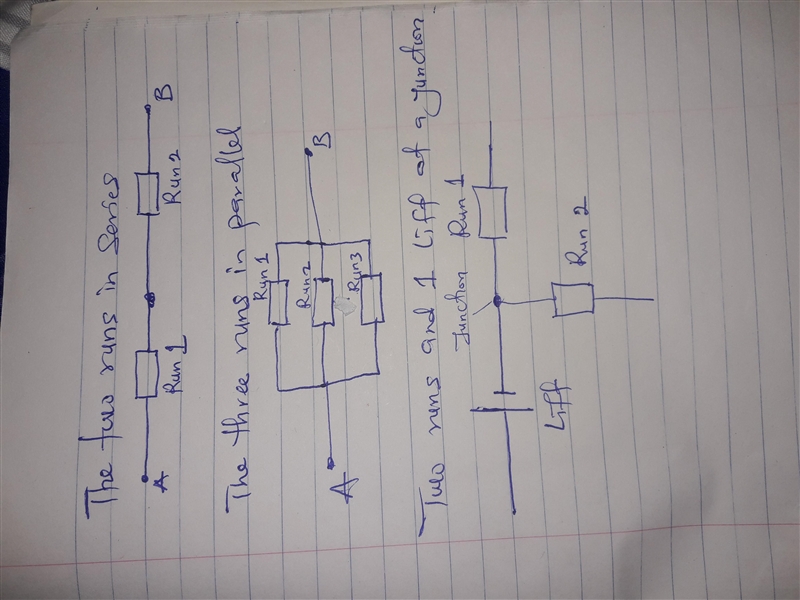 The two runs in Series
A
Run 1
Run 2
B
The three runs in parallel
Run 1
Run 2
Run 3
A
B
Two runs and 1 Liff at a junction
Junction
Run 1
Liff
Run 2